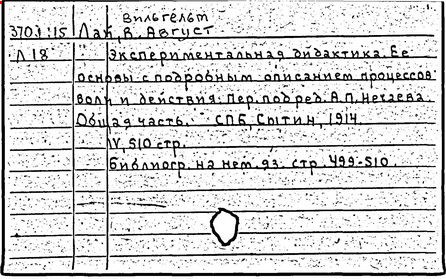 Вильгельм
370.1:15 Лай, В. Август
Л 18 Экспериментальная дидактика. Ее
основы с подробным описанием процессов
воли и действия: Пер. под ред. А.П. Нечаева.
Общая часть. СПБ, Сытин, 1914.
IV, 510 стр.
Библиогр. на нем. яз. стр. 499-510.